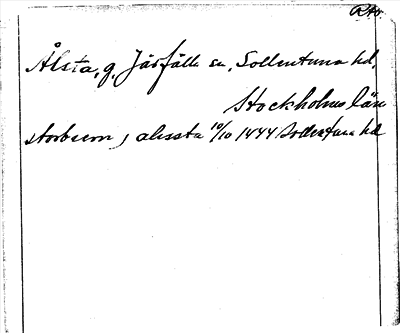 Ålsta, g, Järfälla sn, Sollentuna hd,
Stockholms län
alessta 10/10 1444 Sollentuna hd